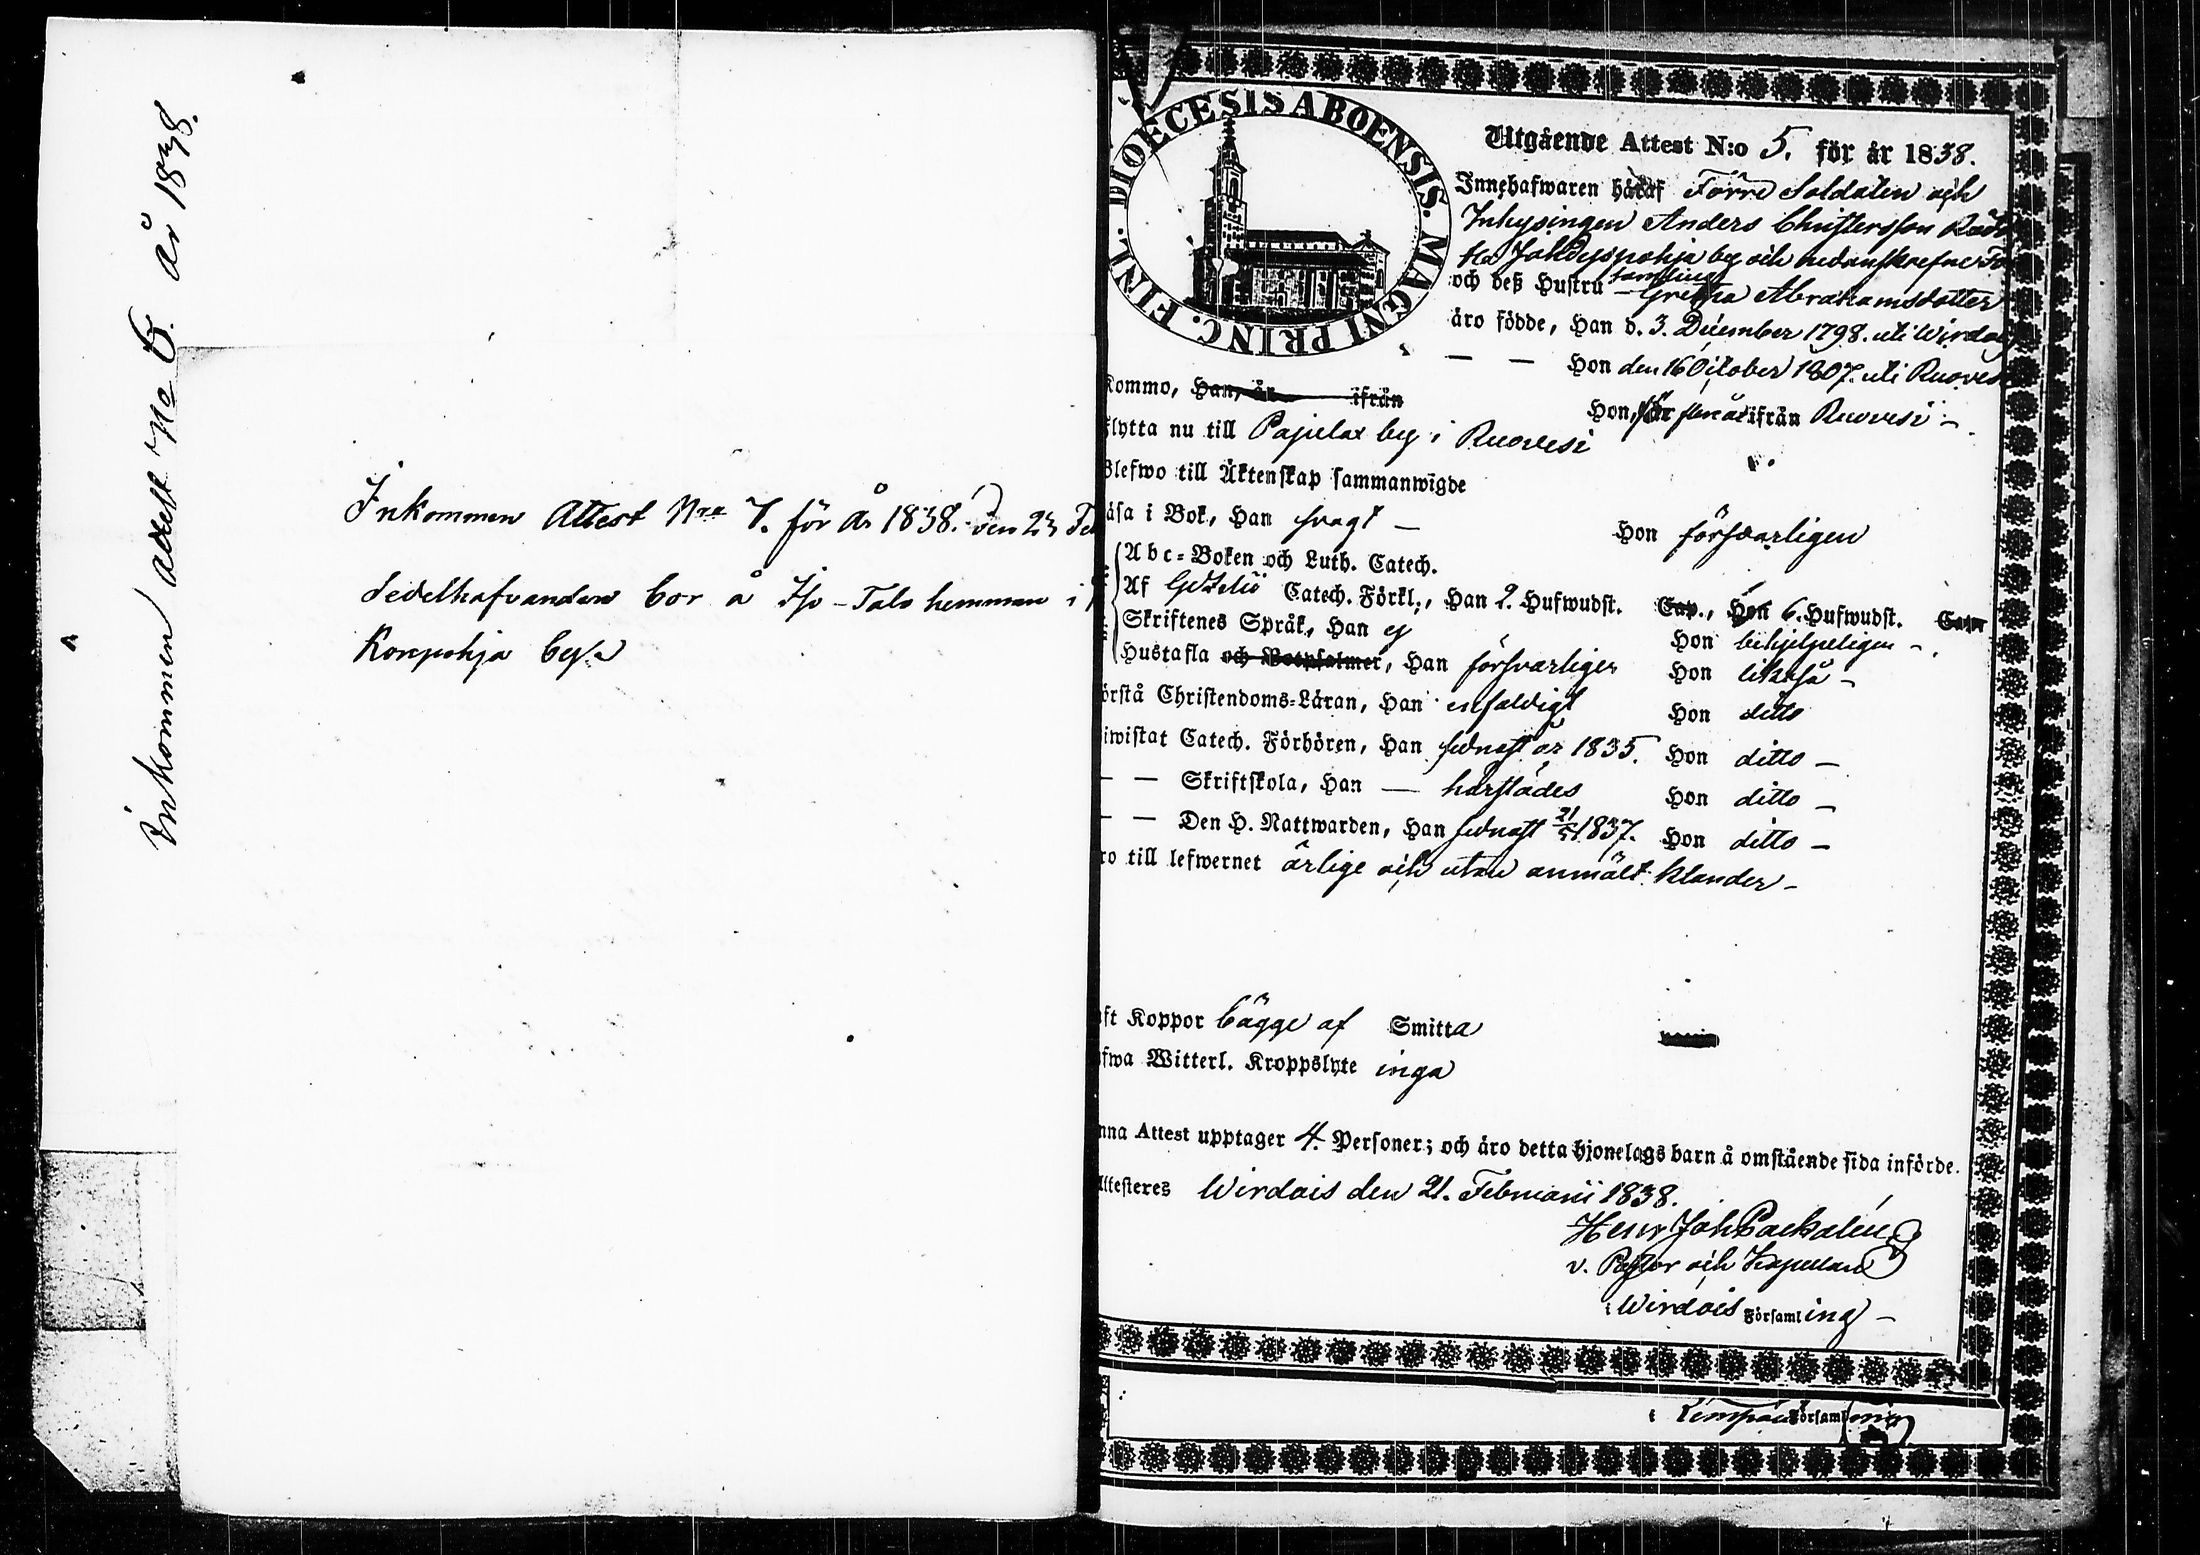 Inkommen Attest No 6. År 1838.
Inkommen Attest Nro 7. för År 1838. den 23 Fe
Sedelhafvanden bor å Iso-Talo hemman i
Koropohja by.
FINL. DIOECESIS ABOENSIS. MAGNI PRINC.
Utgående Attest N:o 5. för år 1838.
Innehafwaren häraf Förre Soldaten och
Inhysingen Anders Christersson
från Jäkdyspohja by och nedanskrefne För
samling
och deß Hustru Gretha Abrahamsdotter
äro födde, Han d. 3. December 1798. uti Wirdois
— — Hon den 16 October 1807. uti Ruoves
kommo, Han, år ifrån Hon, för år ifrån Ruovesi —
flytta nu till Pajulax by i Ruovesi
Blefwo till Äktenskap sammanwigde
äsa i Bok, Han svagt — Hon försvarligen
Abc-Boken och Luth. Catech.
Af Gezelii Catech. Förkl., Han 2. Hufwudst. Cap., Hon 6. Hufwudst. Cap.
Skriftenes Språk, Han ej Hon behjelpeligen —.
Hustafla och Botpsalmer, Han försvarligen Hon likaså —
örstå Christendoms-Läran, Han enfaldigt Hon ditto
iwistat Catech. Förhören, Han sednast år 1835. Hon ditto —
— — Skriftskola, Han — härstädes Hon ditto —
— — Den H. Nattwarden, Han sednast 21/5 1837. Hon ditto —
ro till lefwernet ärlige och utan anmält klander —
ft Koppor bägge af Smitta
fwa Witterl. Kroppslyte inga
nna Attest upptager 4. Personer; och äro detta hjonelags barn å omstående sida införde.
Attesteres Wirdois den 21. Februarii 1838.
Henr Joh Packalén
v. Pastor och Kapellan
i Wirdois Församling —
i Församling